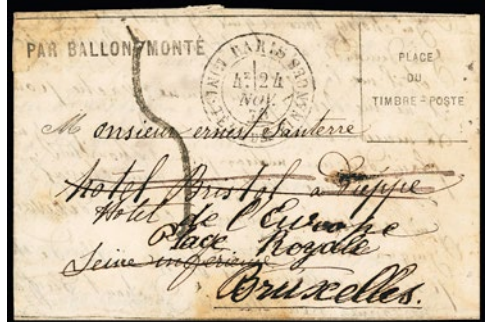 PAR BALLON MONTÉ
PARIS
4E 24
NOV.
70
PLACE
DU
TIMBRE-POSTE
Monsieur ernest Santerre
hotel Bristol a Dieppe
Hotel de l'Europe
Place Royale
Seine inférieure
Bruxelles.